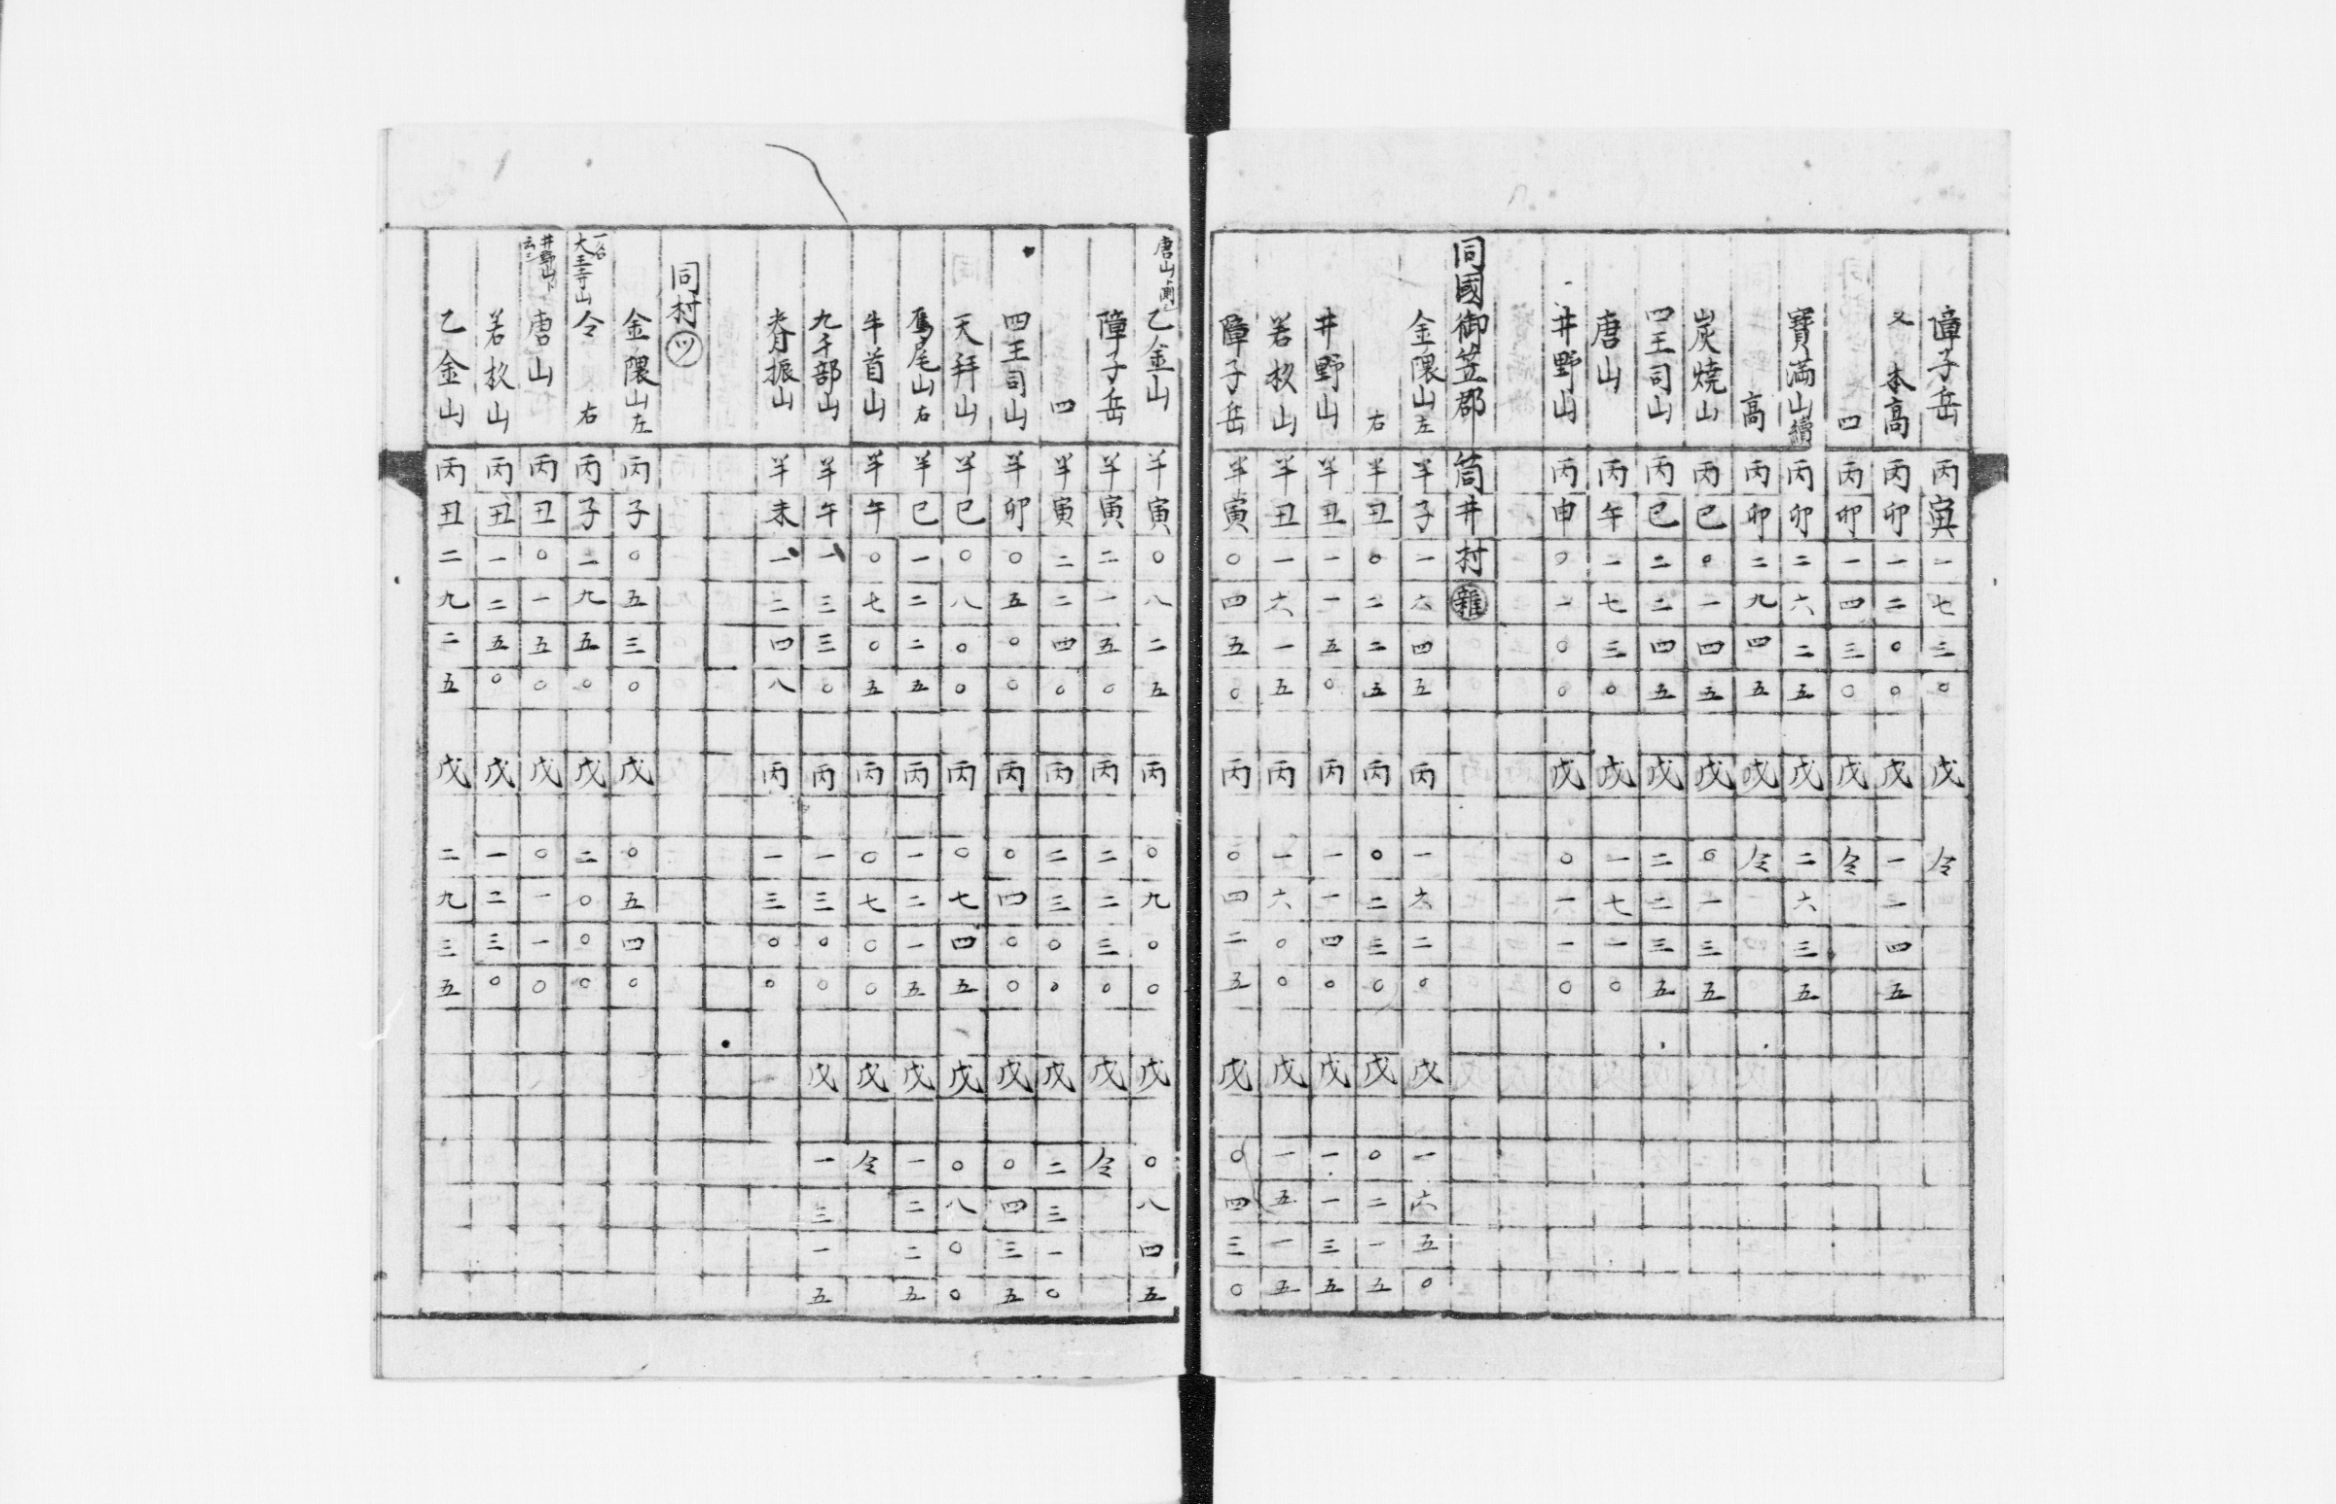 障子岳 丙寅 一七三〇 戊 仝
又 本高 丙卯 一二〇〇 戊 一二四五
四 丙卯 一四三〇 戊 仝
寶満山續 丙卯 二六二五 戊 二六三五
高 丙卯 二九四五 戊 仝
炭燒山 丙巳 〇一四五 戊 〇一三五
四王司山 丙巳 二二四五 戊 二二三五
唐山 丙午 二七三〇 戊 一七一〇
井野山 丙申 〇一〇〇 戊 〇一一〇
同國御笠郡 筒井村 雜
金隈山左 羊子 一六四五 丙 一六二〇 戊 一六五〇
右 羊丑 〇二二五 丙 〇二三〇 戊 〇二一五
井野山 羊丑 一一五〇 丙 一一四〇 戊 一一三五
若杦山 羊丑 一六一五 丙 一六〇〇 戊 一五一五
障子岳 羊寅 〇四五〇 丙 〇四二五 戊 〇四三〇
唐山 乙金山 羊寅 〇八二五 丙 〇九〇〇 戊 〇八四五
障子岳 羊寅 二一五〇 丙 二二三〇 戊 仝
四 羊寅 二二四〇 丙 二三〇〇 戊 二三一〇
四王司山 羊卯 〇五〇〇 丙 〇四〇〇 戊 〇四三五
天拜山 羊巳 〇八〇〇 丙 〇七四五 戊 〇八〇〇
鳫尾山右 羊巳 一二二五 丙 一二一五 戊 一二二五
牛首山 羊午 〇七〇五 丙 〇七〇〇 戊 仝
九千部山 羊午 一三三〇 丙 一三〇〇 戊 一三一五
脊振山 羊未 一二四八 丙 一三〇〇
同村 ツ
金隈山左 丙子 〇五三〇 戊 〇五四〇
一名大王寺山 仝 右 丙子 二九五〇 戊 二〇〇〇
井野山下云々 唐山 丙丑 〇一五〇 戊 〇一一〇
若杦山 丙丑 一二五〇 戊 一二三〇
乙金山 丙丑 二九二五 戊 二九三五